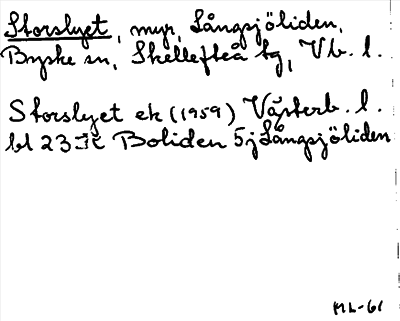 Storslyet, myr, Långsjöliden,
Byske sn, Skellefteå tg, Vb. l.
Storslyet ek (1959) Västerb. l.
bl 23 Boliden 5j Långsjöliden
ML-61